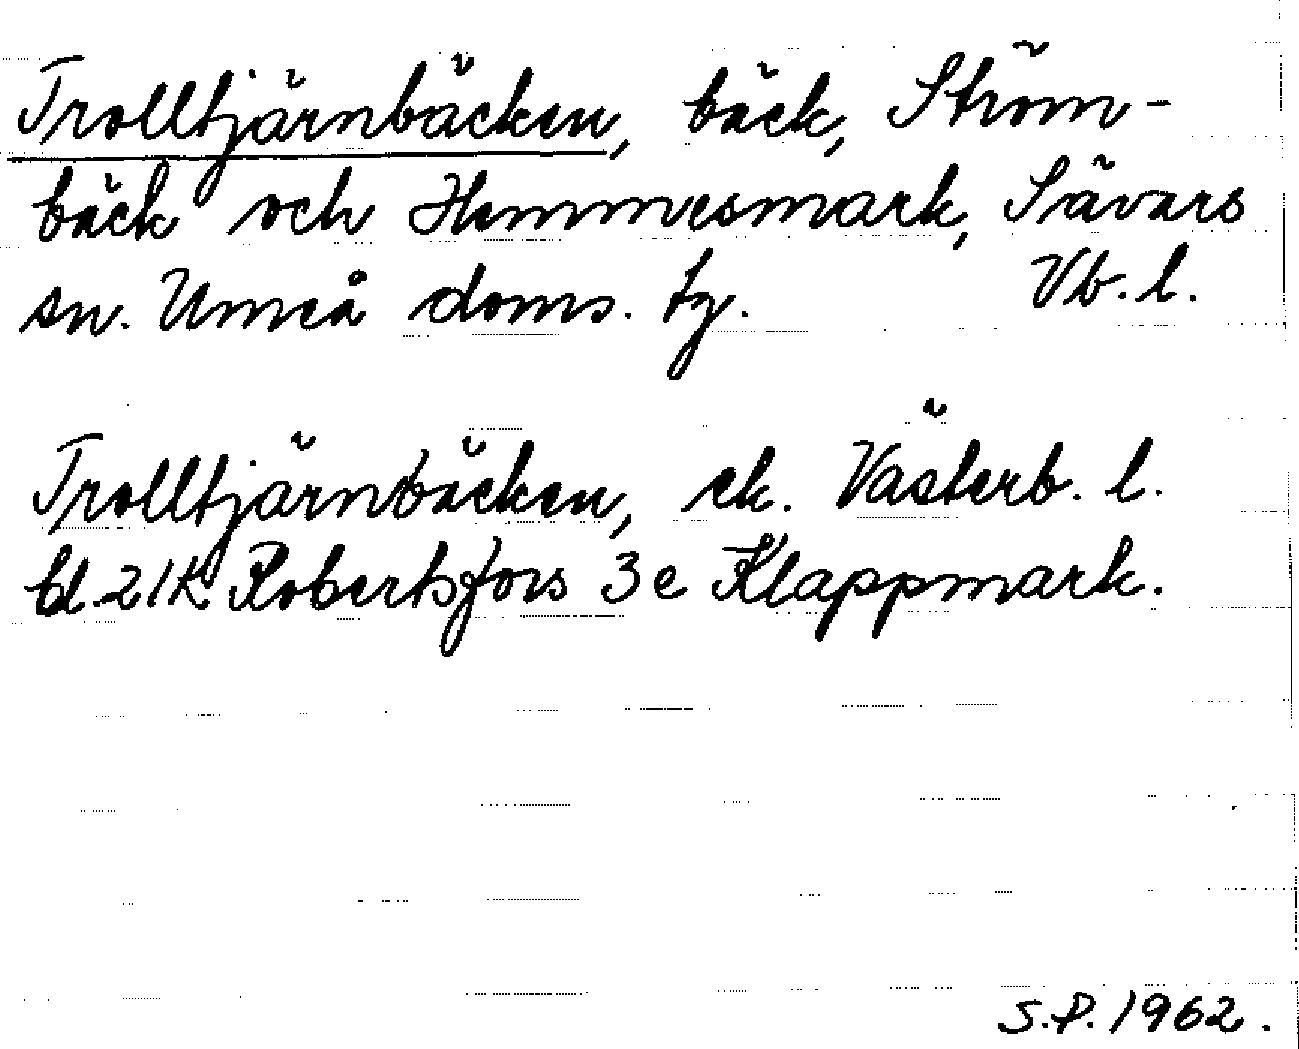 Trolltjärnbäcken, bäck, Ström-
bäck och Hemmesmark, Sävars
sn. Umeå doms. tg. Vb. l.
Trolltjärnbäcken, ek. Västerb. l.
bl. 21K Robertsfors 3e Klappmark.
S.P. 1962.